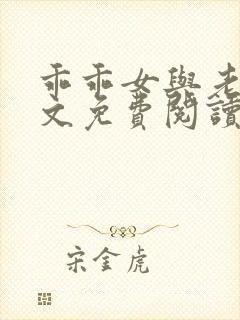 乖乖女與老
文免費閱讀
宋金虎